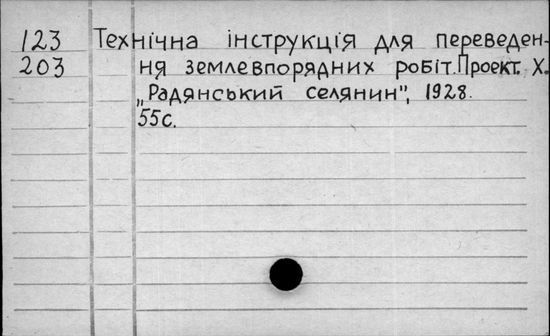 123 Технічна інструкція для переведен-
203 ня землевпорядних робіт. Проект. Х.
„Радянський селянин", 1928.
55с.